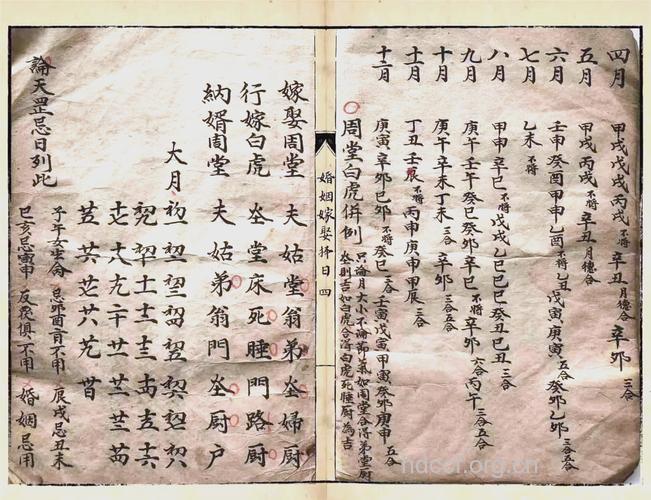 四月 甲戌戊戌丙戌不将辛丑月德合辛卯三合
五月 甲戌丙戌不将辛丑月德合
六月 壬申癸酉甲申乙酉不将乙丑戊寅庚寅五合癸卯乙卯三合五合
七月 乙未不将
八月 甲申辛巳不将戊戌乙巳己巳癸丑巳丑三合
九月 庚午壬午癸巳癸卯辛巳不将辛卯六合丙午三合五合
十月 庚午辛未丁未三合辛卯三合五合
十一月 丁丑壬辰不将丙申庚申甲辰三合
十二月 庚寅辛卯己卯不将壬寅戊寅甲寅癸卯庚申五合
周堂白虎併例 只論月大小不論節氣如周堂合得弟堂厨
灶則吉如白虎合得白虎死睡厨為吉
婚姻嫁娶择日四
嫁娶周堂 夫姑堂翁弟灶婦厨
行嫁白虎 灶堂床死睡門路厨
納婿周堂 夫姑弟翁門灶厨户
大月 初一 初二 初三 初四 初五 初六 初七 初八
初九 初十 十一 十二 十三 十四 十五 十六
十七 十八 十九 二十 廿一 廿二 廿三 廿四
廿五 廿六 廿七 廿八 廿九 三十
論天罡忌日列此
子午女生命 忌卯酉 不用 辰戌忌丑未
巳亥忌寅申 反畏惧不用 婚姻忌用
ndcci.org.cn